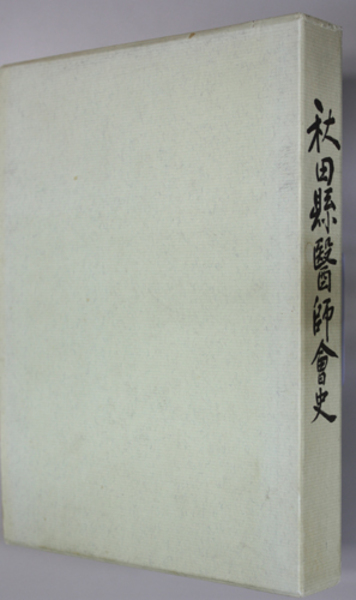 秋田縣醫師會史